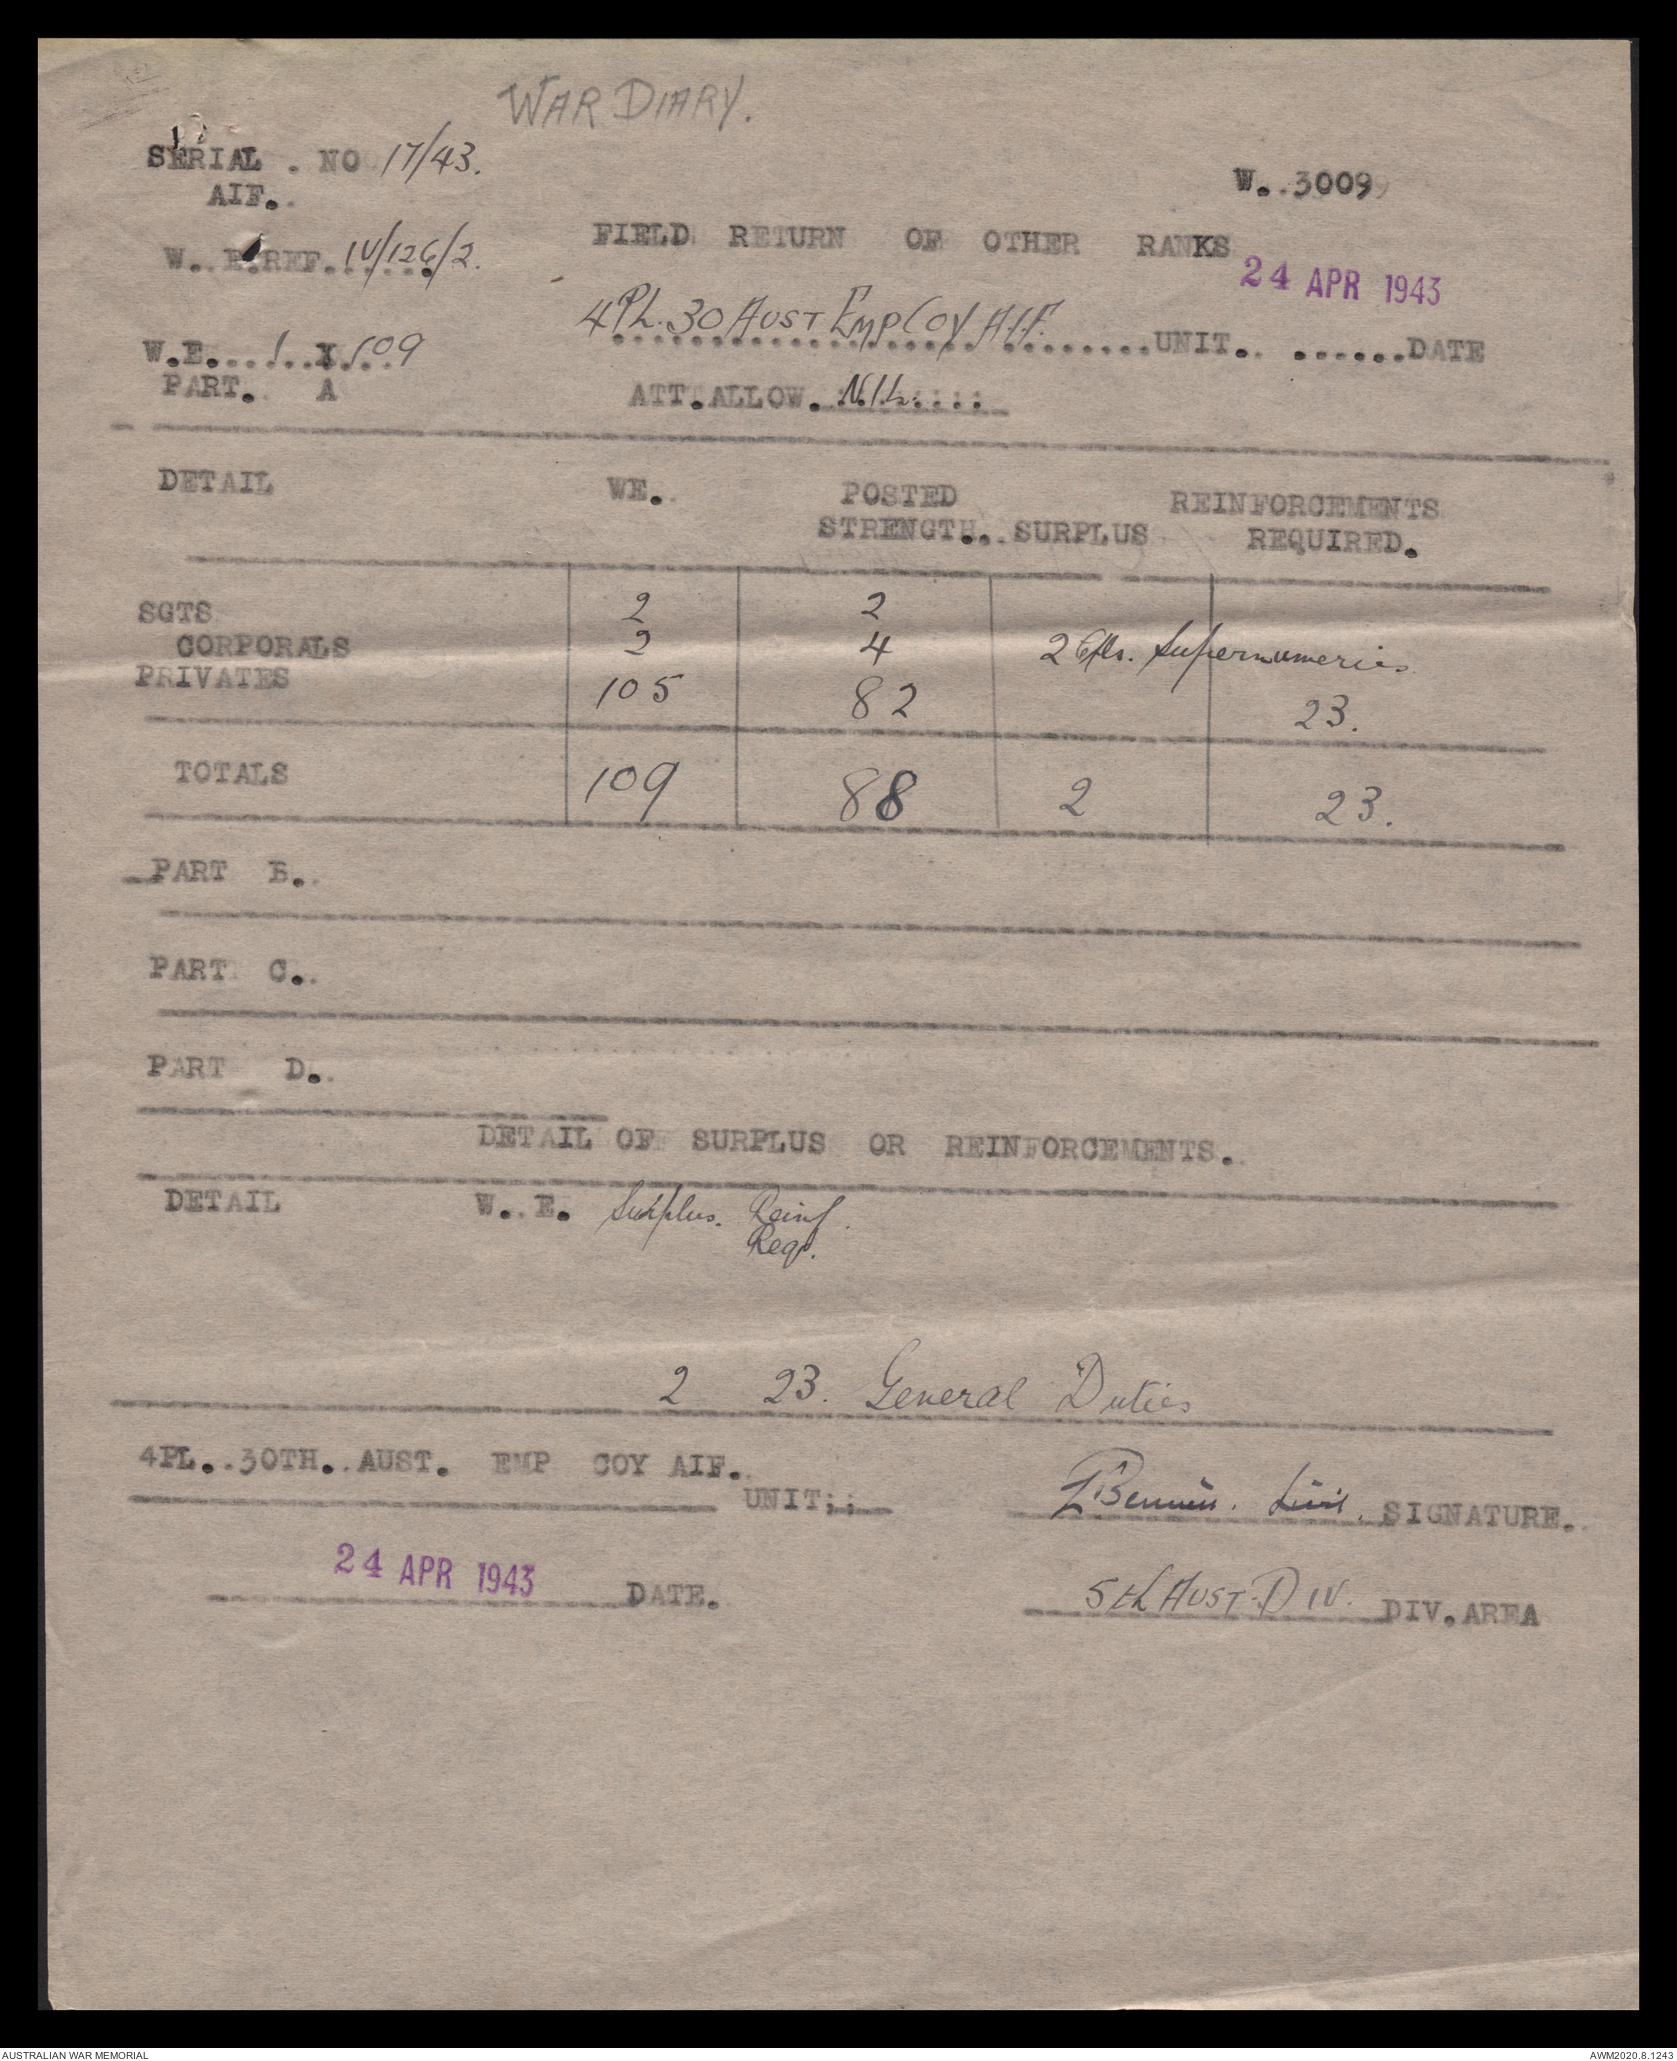 WAR DIARY.
SERIAL . NO 17/43.
AIF.
W. 3009
W. E.REF. IV/126/2.
FIELD RETURN OF OTHER RANKS
24 APR 1943
4 PL. 30 AUST EMP COY A.I.F. UNIT. ......DATE
W.E. 1 X 109
PART. A
ATT.ALLOW. NIL.
DETAIL WE. POSTED STRENGTH. SURPLUS REINFORCEMENTS REQUIRED.
SGTS 2 2
CORPORALS 2 4 2 Cpls. Supernumeries
PRIVATES 105 82 23.
TOTALS 109 88 2 23.
PART B.
PART C.
PART D.
DETAIL OF SURPLUS OR REINFORCEMENTS.
DETAIL W. E. Surplus. Reinf.
Reqr.
2 23. General Duties
4PL. 30TH. AUST. EMP COY AIF.
UNIT;;
SIGNATURE.
24 APR 1943 DATE.
5th AUST. DIV. DIV.AREA
AUSTRALIAN WAR MEMORIAL
AWM2020.8.1243